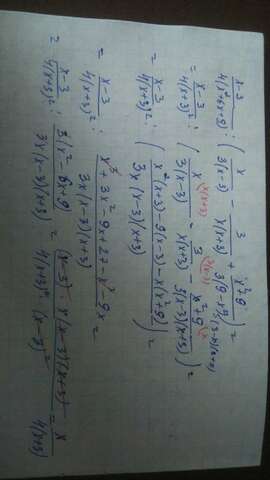 = (x-3)/(4(x²+6x+9)) : ( x/(3(x-3)) - 3/(x(x+3)) + (x²+9)/(3(9-x²)) ) =
= (x-3)/(4(x+3)²) : ( x/(3(x-3)) - 3/(x(x+3)) - (x²+9)/(3(x-3)(x+3)) ) =
= (x-3)/(4(x+3)²) : ( (x²(x+3)-9(x-3)-x(x²+9))/(3x(x-3)(x+3)) ) =
= (x-3)/(4(x+3)²) : (x³+3x²-9x+27-x³-9x)/(3x(x-3)(x+3)) =
= (x-3)/(4(x+3)²) : (3(x²-6x+9))/(3x(x-3)(x+3)) = ((x-3)·x(x-3)(x+3))/(4(x+3)²·(x-3)²) = x/(4(x+3))